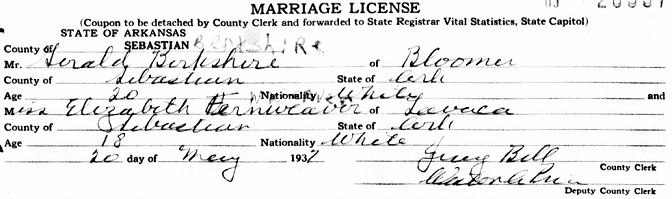 MARRIAGE LICENSE
(Coupon to be detached by County Clerk and forwarded to State Registrar Vital Statistics, State Capitol)
STATE OF ARKANSAS
County of SEBASTIAN BERKSHIRE
Mr. Gerald Berkshire of Bloomer
County of Sebastian State of Ark
Age 20 Nationality White and
Miss Elizabeth Fernweaver of Lavaca
County of Sebastian State of Ark
Age 18 Nationality White
20 day of May 1937
Bell County Clerk
Deputy County Clerk